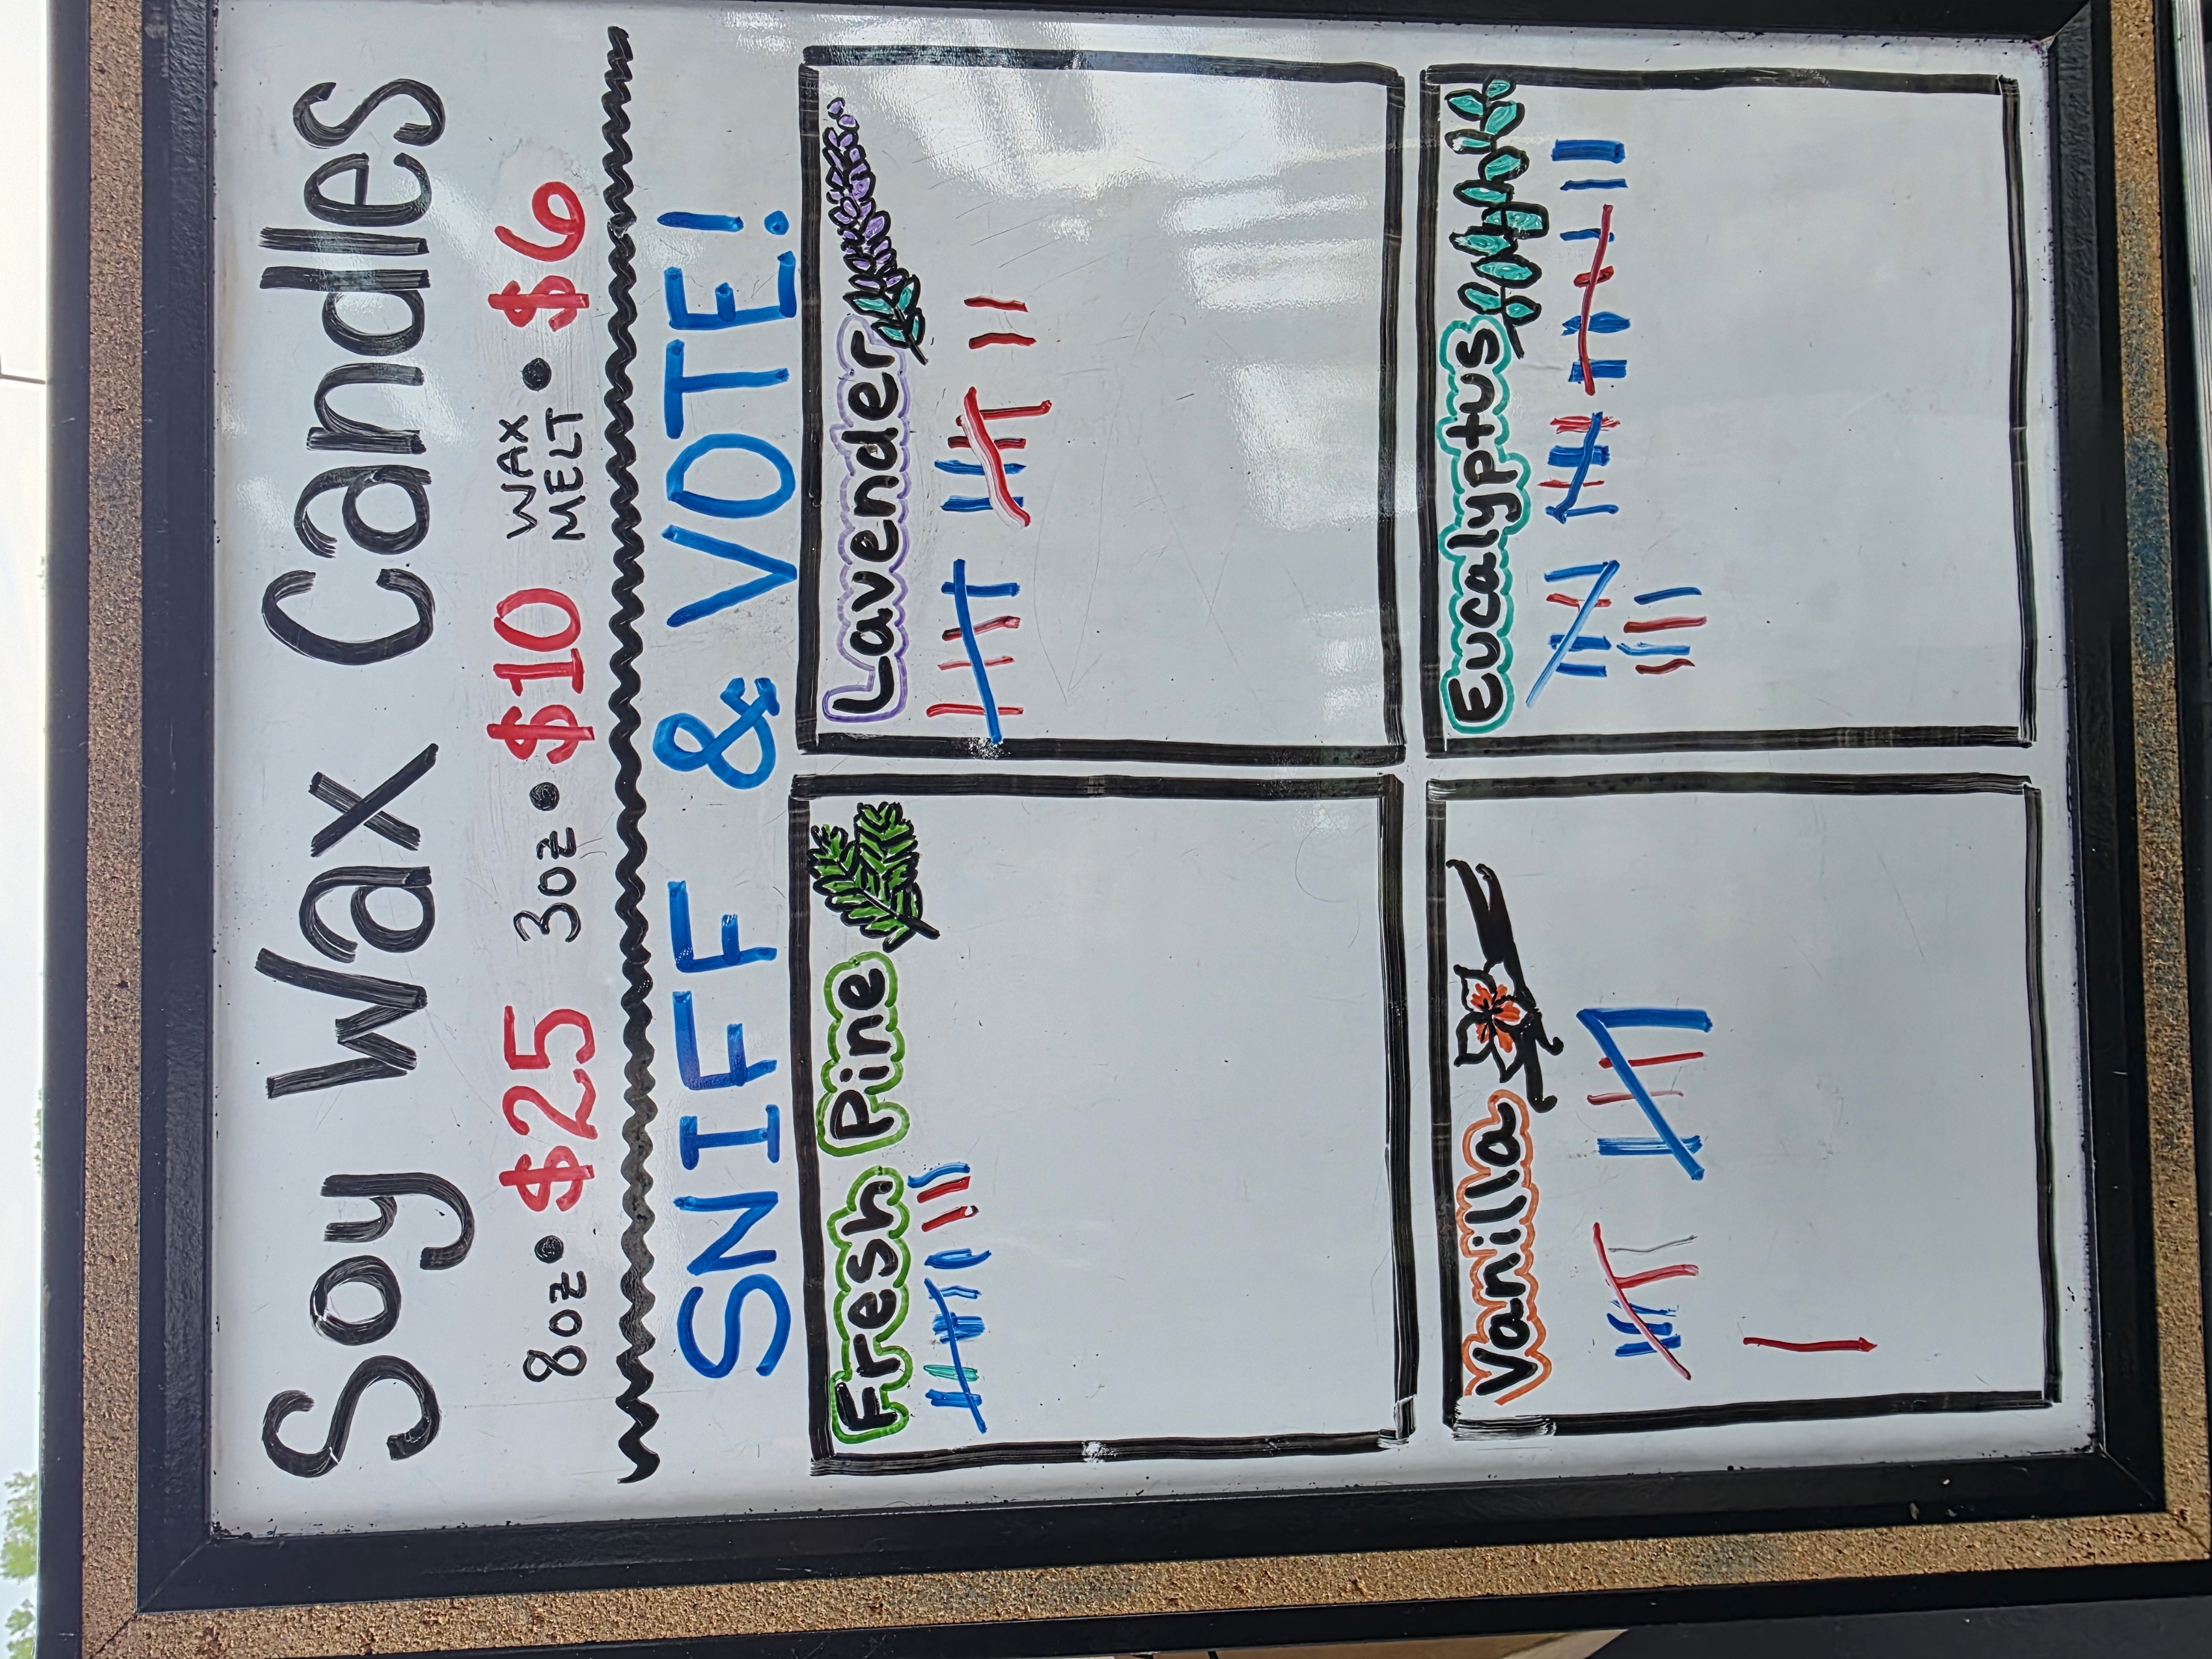 Soy Wax Candles
8oz • $25 3oz • $10 WAX MELT • $6
SNIFF & VOTE!
Fresh Pine
Lavender
Vanilla
Eucalyptus